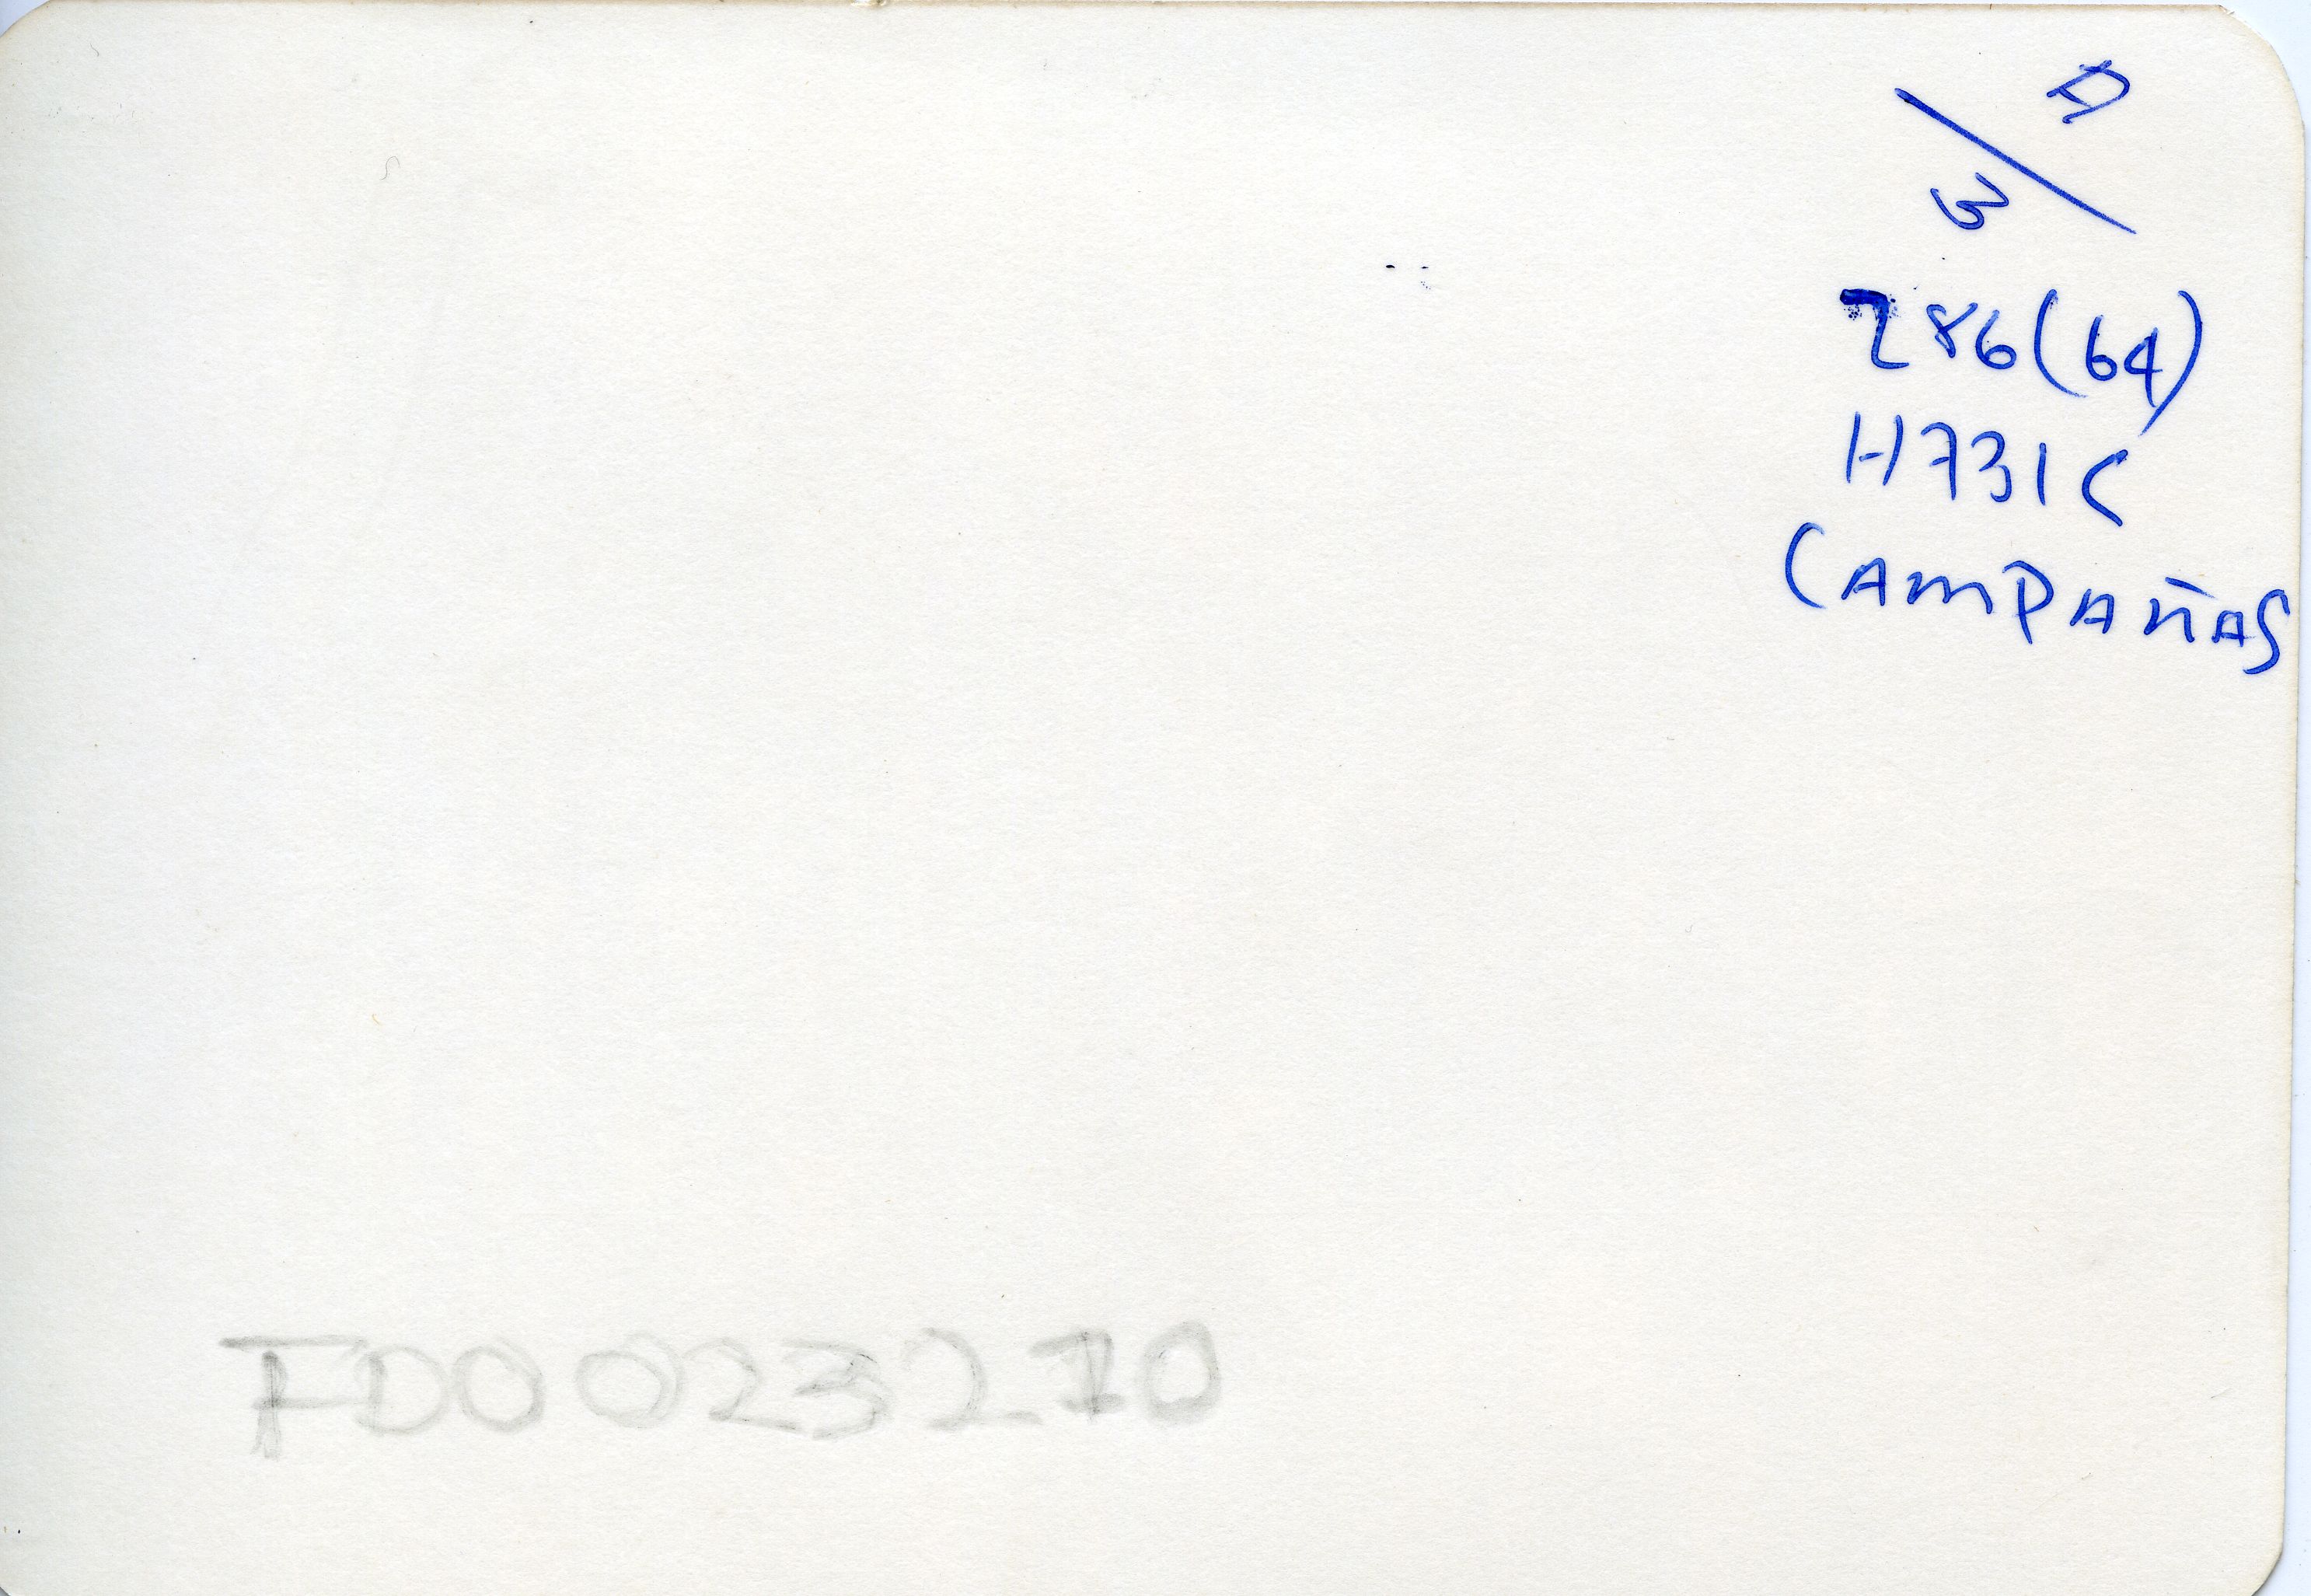 A/3
286(64)
H731C
CAMPAÑAS
FD0023270